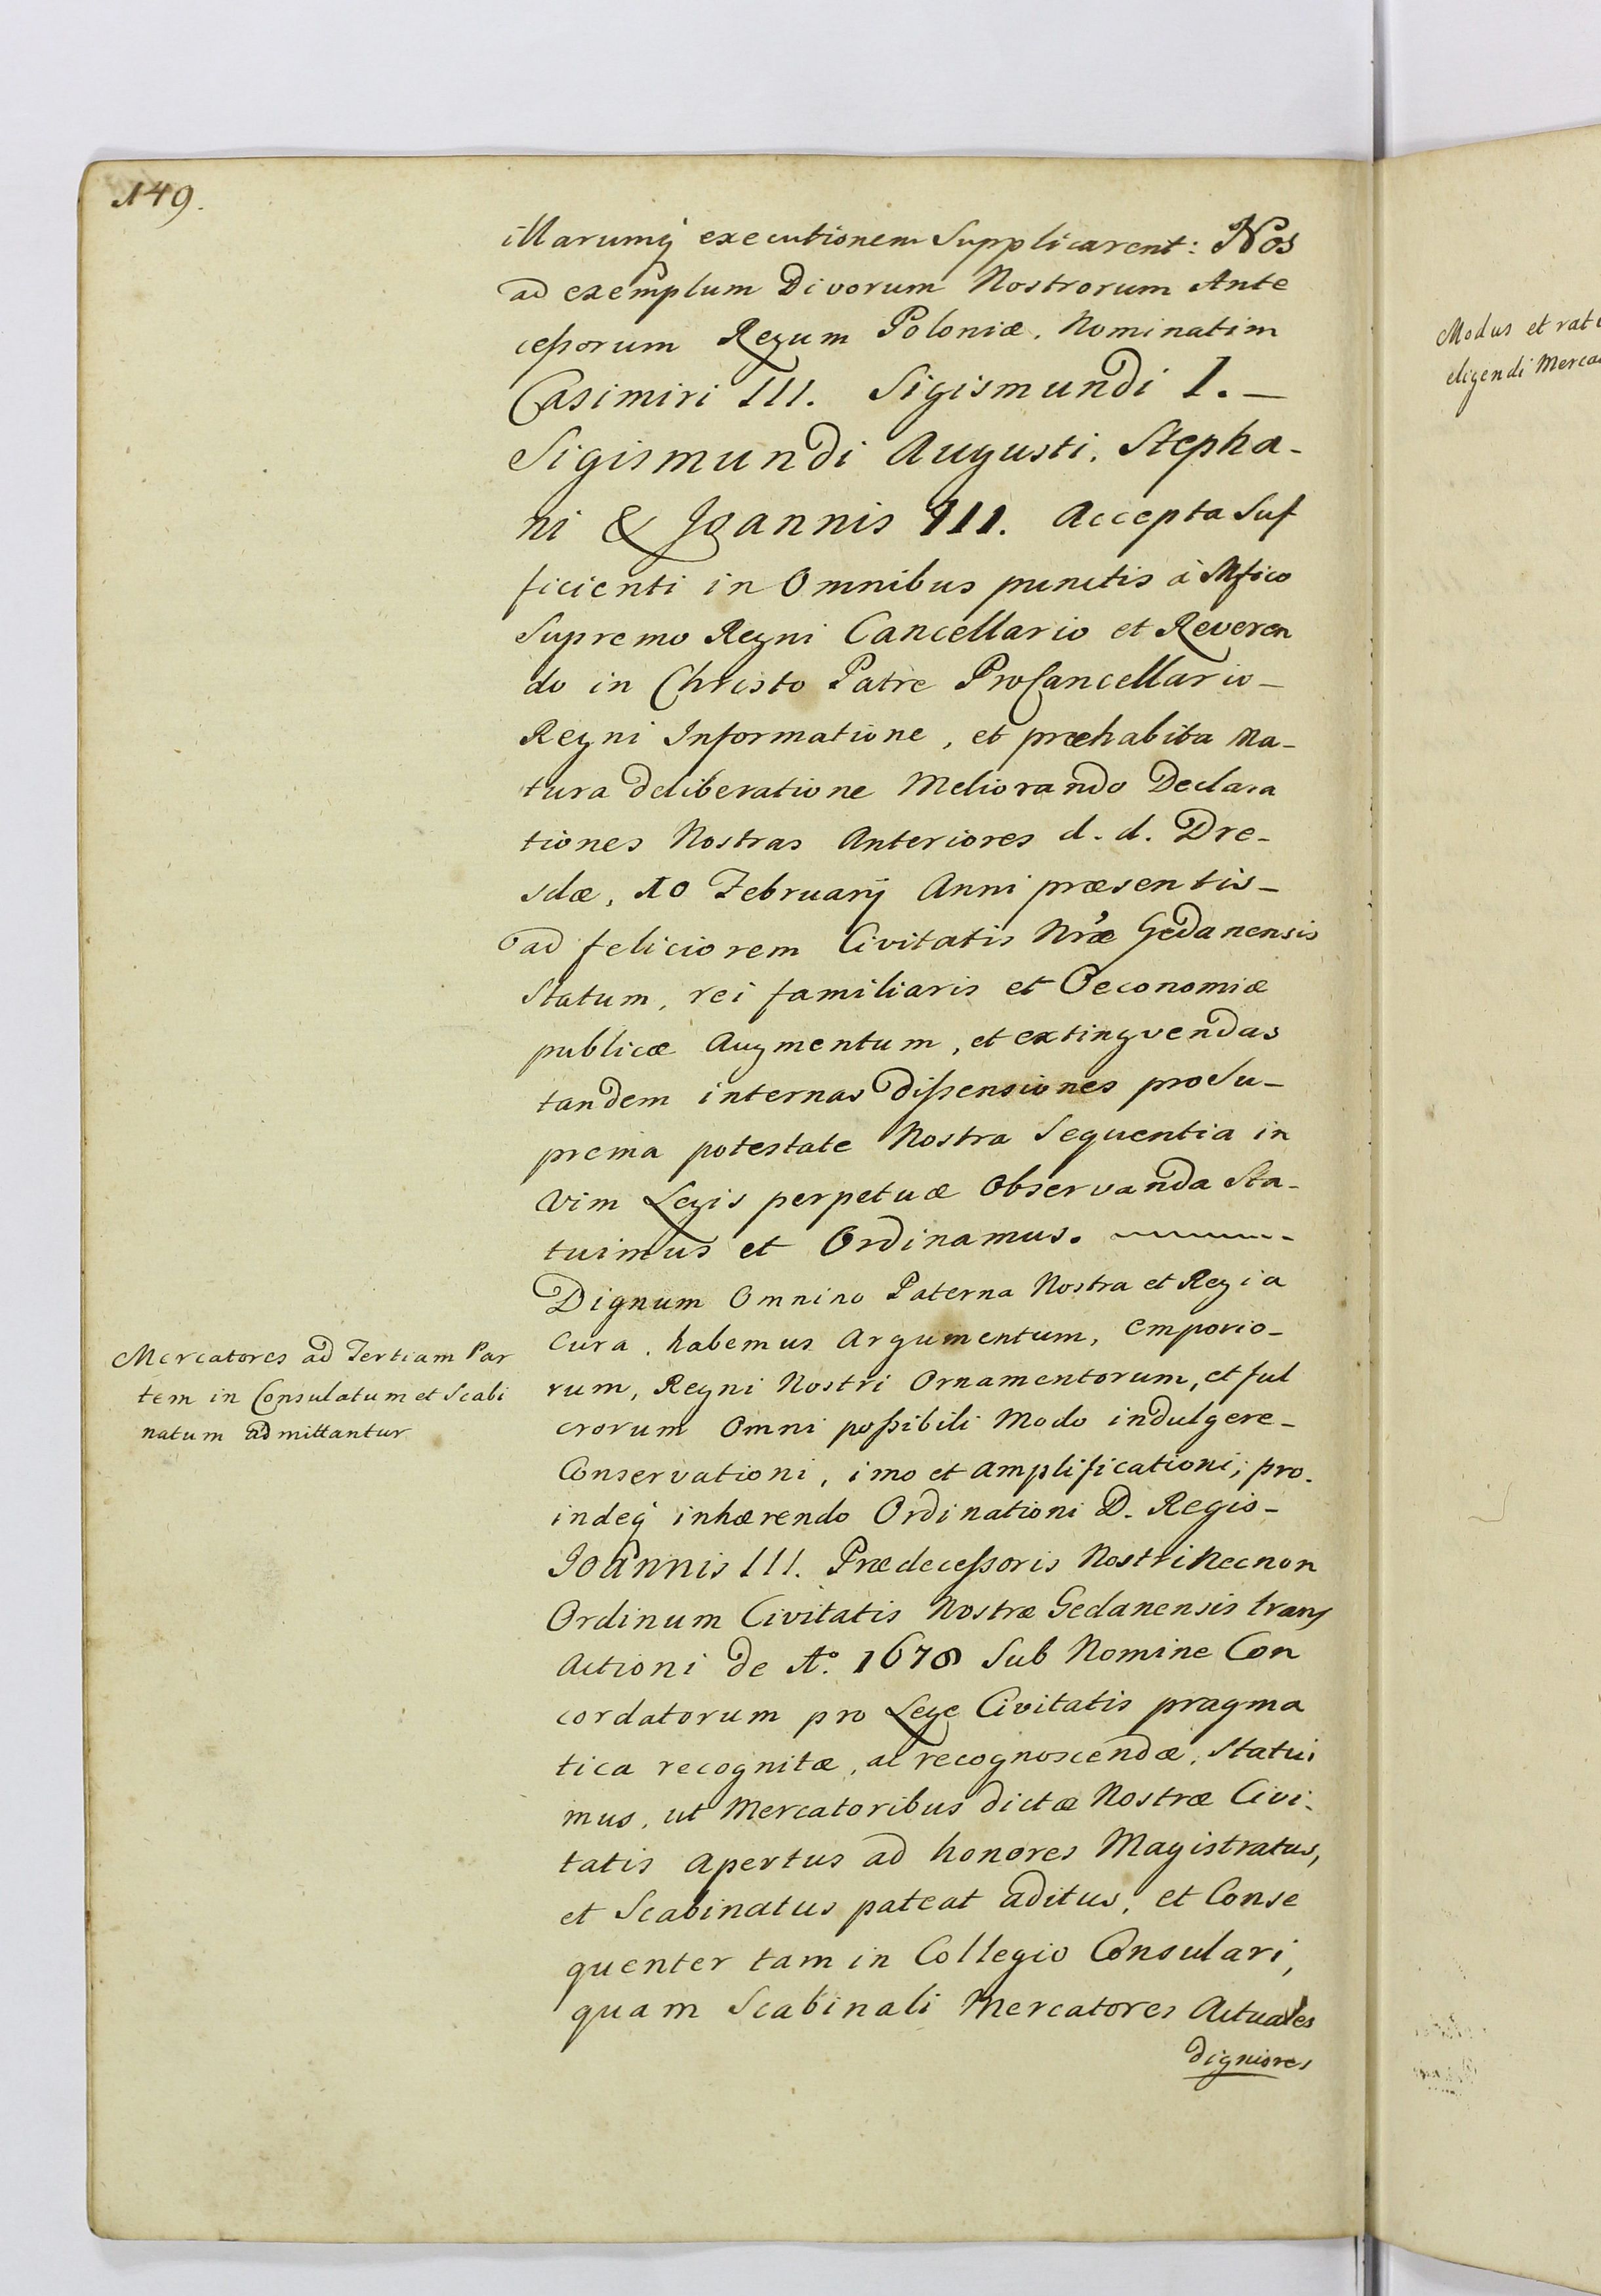 149.
illarumq́ executionem Supplicarent: Nos
ad exemplum Divorum Nostrorum Ante
ceßorum Regum Poloniæ, Nominatim
Casimiri III. Sigismundi I. –
Sigismundi Augusti, Stepha-
ni & Joannis III. Accepta Suf
ficienti in Omnibus punctis à Mfico
Supremo Regni Cancellario et Reveren
do in Christo Patre ProCancellario –
Regni Informatione, et præhabita Ma-
tura deliberatione Meliorando Declara
tiones Nostras Anteriores d. d. Dre-
sdæ, 10 Februarÿ Anni præsentis –
ad feliciorem Civitatis Nræ Gedanensis
Statum, rei familiaris et Oeconomiæ
publicæ Augmentum, et extingvendas
tandem internas dißensiones pro Su-
prema potestate Nostra Sequentia in
Vim Legis perpetuæ Observanda Sta-
tuimus et Ordinamus.
Dignum Omnino Paterna Nostra et Regia
Cura, habemus Argumentum, Emporio-
rum, Regni Nostri Ornamentorum, et ful
crorum Omni poßibili Modo indulgere –
Conservationi, imo et Amplificationi; pro-
indeq́ inhærendo Ordinationi D. Regis –
Joannis III. Prædeceßoris Nostri Necnon
Ordinum Civitatis Nostræ Gedanensis trans
Actioni de Aº. 1678 Sub Nomine Con
cordatorum pro Lege Civitatis pragma
tica recognitæ, ac recognoscendæ, Statui
mus, ut Mercatoribus dictæ Nostræ Civi-
tatis Apertus ad honores Magistratus,
et Scabinatus pateat aditus, et Conse
quenter tam in Collegio Consulari,
quam Scabinali Mercatores Actuales
digniores
Mercatores ad Tertiam Par
tem in Consulatum et Scabi
natum admittantur
Modus et rati
eligendi Merca